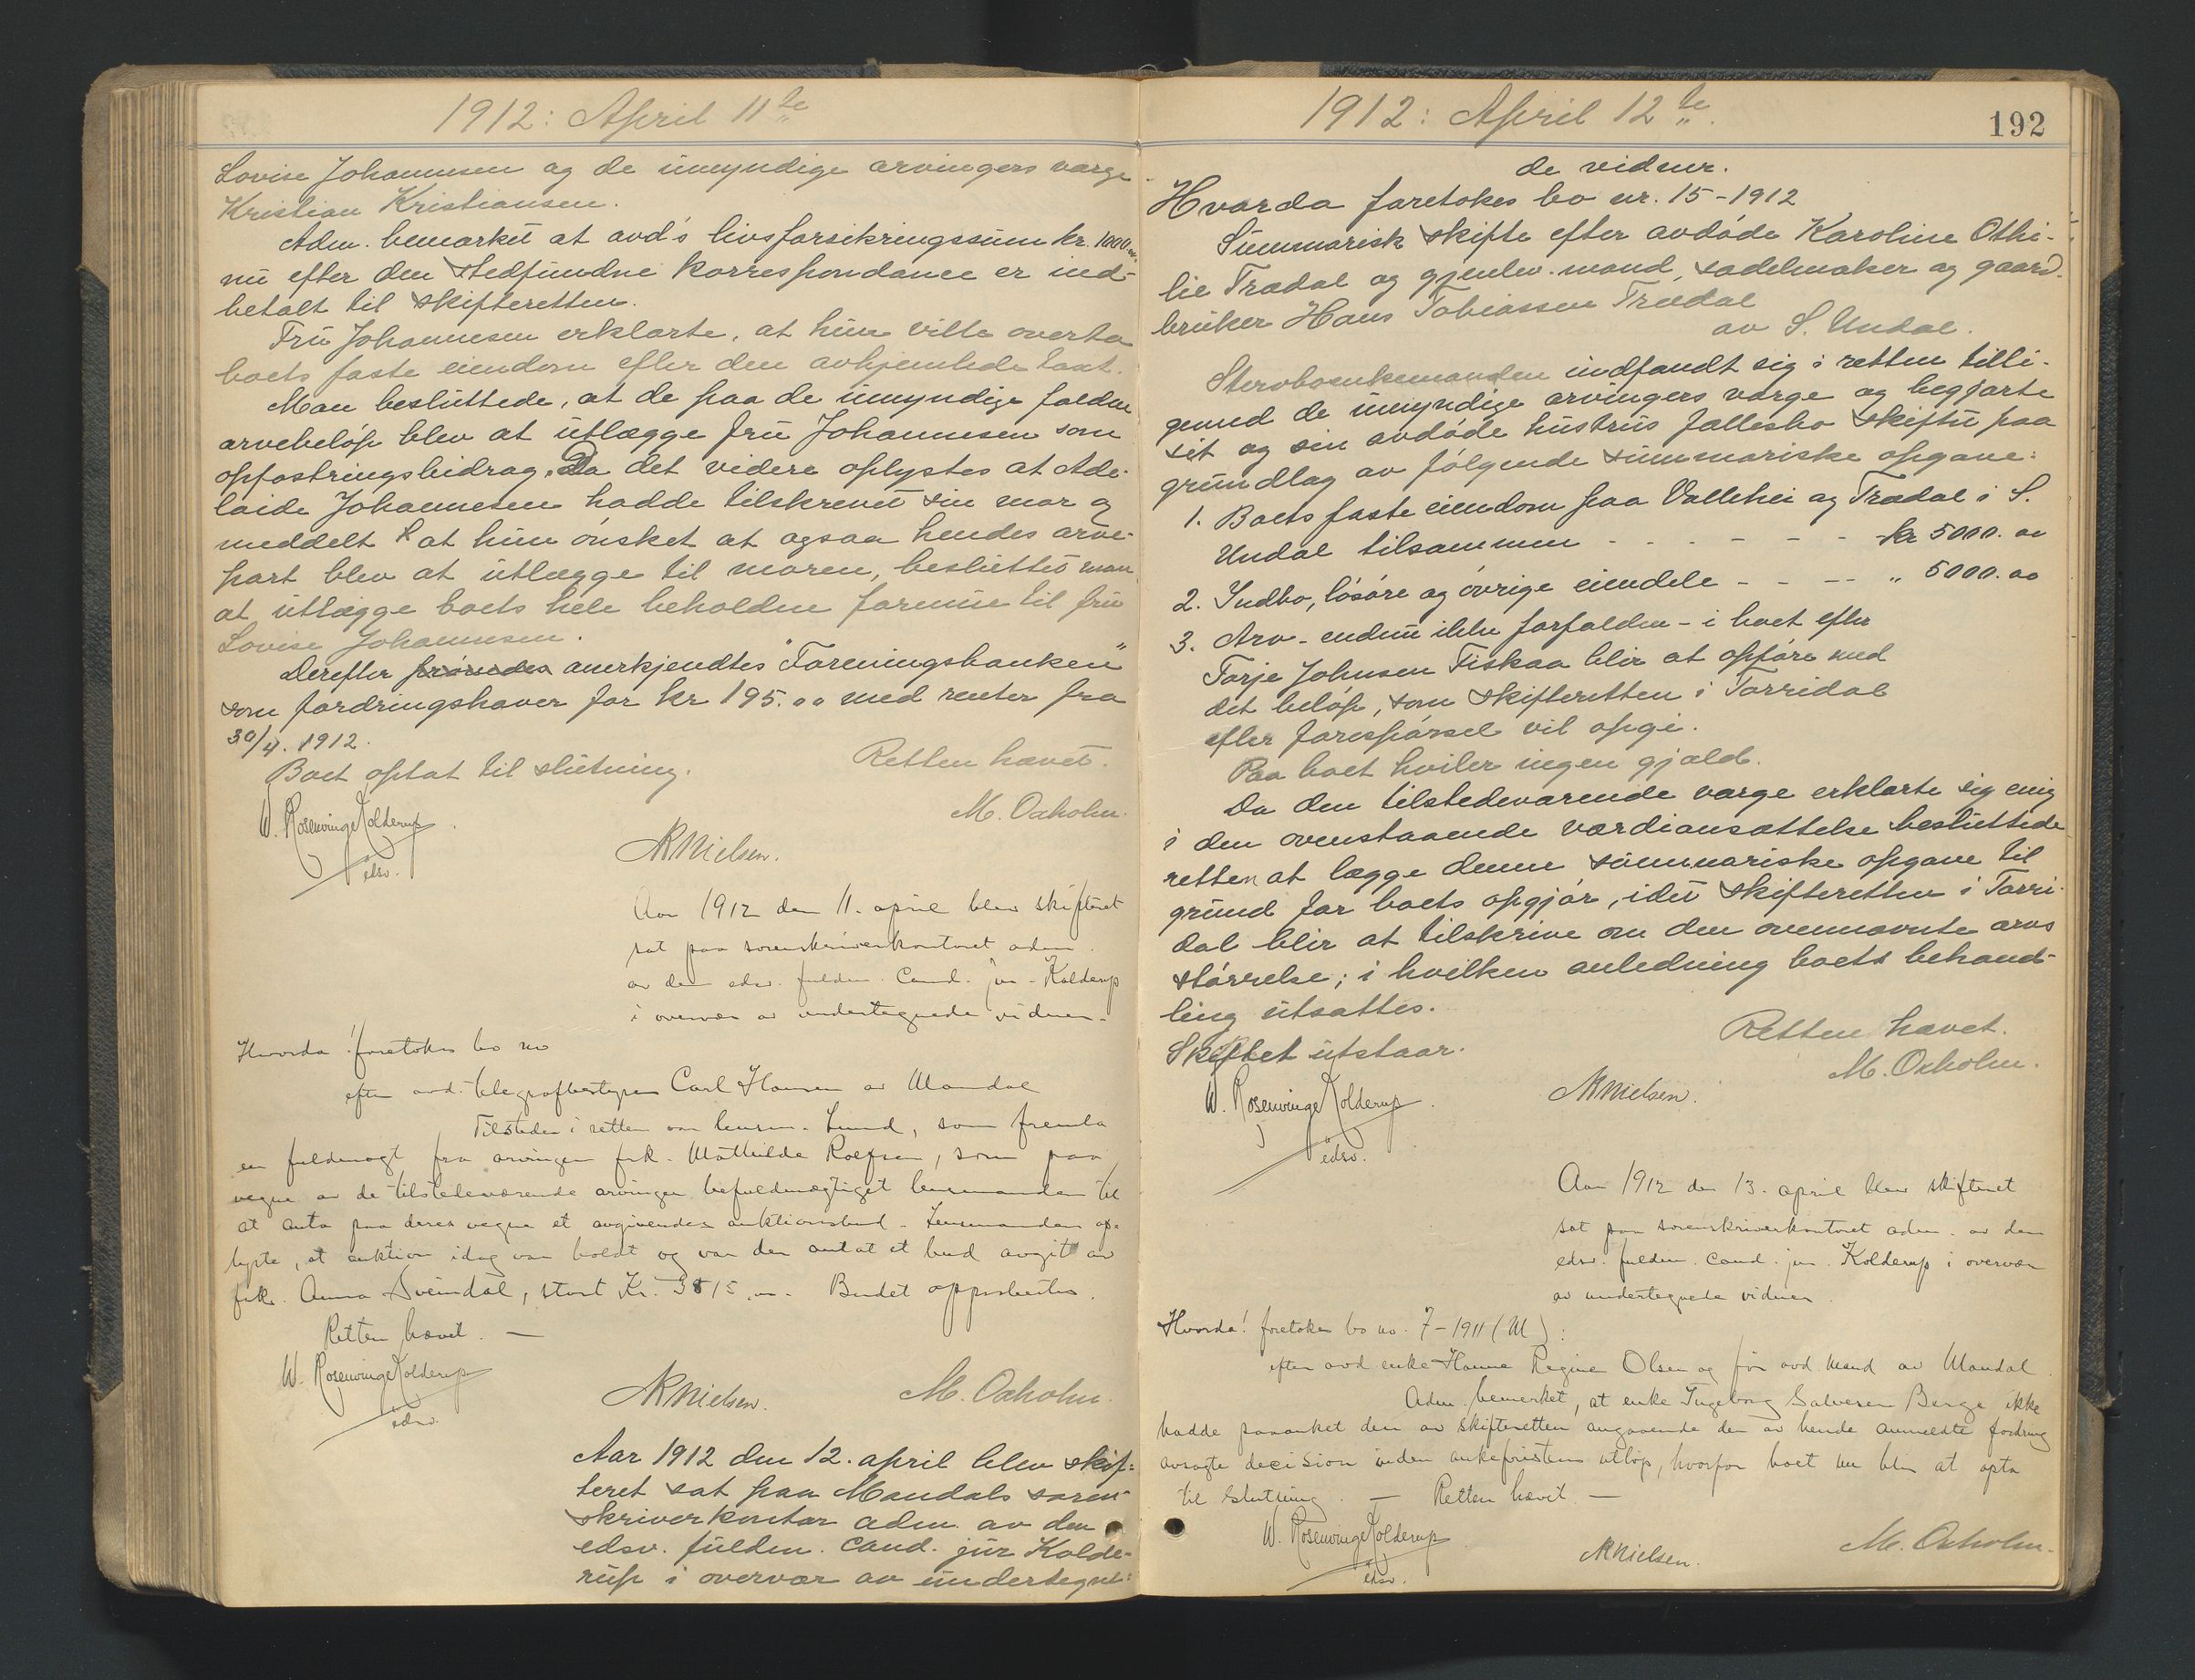 1912: April 11te
Lovise Johannesen og de umyndige arvingers værge
Kristian Kristiansen.
Adm. bemærket at avd's livsforsikringssum kr. 1000.00
nu efter den stedfundne korrespondance er ind-
betalt til skifteretten.
Fru Johannesen erklærte, at hun vilte overta
boets faste eiendom efter den avhjemlede taxt.
Man besluttede, at de paa de umyndige faldne
arvebeløp blev at utlægge fru Johannesen som
opfostringsbidrag. Da det videre oplystes at Ade-
laide Johannesen hadde tilskrevet sin mor og
meddelt at hun ønsket at ogsaa hendes arve-
part blev at utlægge til moren, besluttet man
at utlægge boets hele beholdne formue til fru
Lovise Johannesen.
Derefter anerkjendtes "Foreningsbanken"
som fordringshaver for kr 195.00 med renter fra
30/4. 1912.
Boet optat til slutning.
Retten hævet.
W. Rosenvinge Kolderup
edsv.
M. Oxholm.
NNielsen.
Aar 1912 den 11. april blev skifteret
sat paa sorenskriverkontoret adm.
av den edsv. fuldm. cand. jur. Kolderup
i overvær av undertegnede vidner.
Hvorda! foretokes bo no
efter avd. telegrafbestyrer Carl Hansen av Mandal
Tilstede i retten var lensm. Lund, som fremla
en fuldmagt fra arvingen frk. Mathilde Roefsen, som paa
vegne av de tilstedeværende arvinger befuldmægtiget lensmanden til
at anta paa deres vegne et avgivendes auktionsbud. Lensmanden op-
lyste, at auktion idag var holdt og var der antat et bud avgit av
frk. Anna Sveindal, stort Kr. 3815.00. Budet approbertes.
Retten hævet. —
W. Rosenvinge Kolderup
edsv.
NNielsen.
M. Oxholm.
Aar 1912 den 12. april blev skif-
teret sat paa Mandals soren-
skriverkontor adm. av den
edsv. fuldm. cand. jur Kolde-
rup i overvær av undertegne-
1912: April 12te.
192
de vidner.
Hvorda foretokes bo nr. 15-1912
Summarisk skifte efter avdøde Karoline Othi-
lie Trædal og gjenlev. mand, sadelmaker og gaard-
bruker Hans Tobiassen Trædal
av S. Undal.
Stervboenkemanden indfandt sig i retten tilli-
gemed de umyndige arvingers værge og begjærte
sit og sin avdøde hustrus fællesbo skiftet paa
grundlag av følgende summariske opgave:
1. Boets faste eiendom paa Vallehei og Trædal i S.
Undal tilsammen - - - - - - kr 5000.00
2. Indbo, løsøre og øvrige eiendele - - - - " 5000.00
3. Arv - endnu ikke forfalden - i boet efter
Torje Johnsen Fiskaa blir at opføre med
det beløp, som skifteretten i Torridal
efter forespørsel vil opgi.
Paa boet hviler ingen gjæld.
Da den tilstedeværende værge erklærte sig enig
i den ovenstaaende værdiansættelse besluttede
retten at lægge denne summariske opgave til
grund for boets opgjør, idet skifteretten i Torri-
dal blir at tilskrive om den ovennævnte arvs
størrelse; i hvilken anledning boets behand-
ling utsattes.
Skiftet utstaar.
Retten hævet.
M. Oxholm.
W. Rosenvinge Kolderup
edsv.
NNielsen.
Aar 1912 den 13. april blev skifteret
sat paa sorenskriverkontoret adm. av den
edsv. fuldm. cand. jur. Kolderup i overvær
av undertegnede vidner
Hvorda! foretokes bo no. 7-1911 (M):
efter avd enke Hanne Regine Olsen og før avd. mand av Mandal.
Adm. bemerket, at enke Ingeborg Salvesen Berge ikke
hadde paaanket den av skifteretten angaaende den av hende anmeldte fordring
avsagte decision inden ankefristens utløp, hvorfor boet nu blir at opta
til slutning. — Retten hævet. —
W. Rosenvinge Kolderup
edsv.
NNielsen.
M. Oxholm.